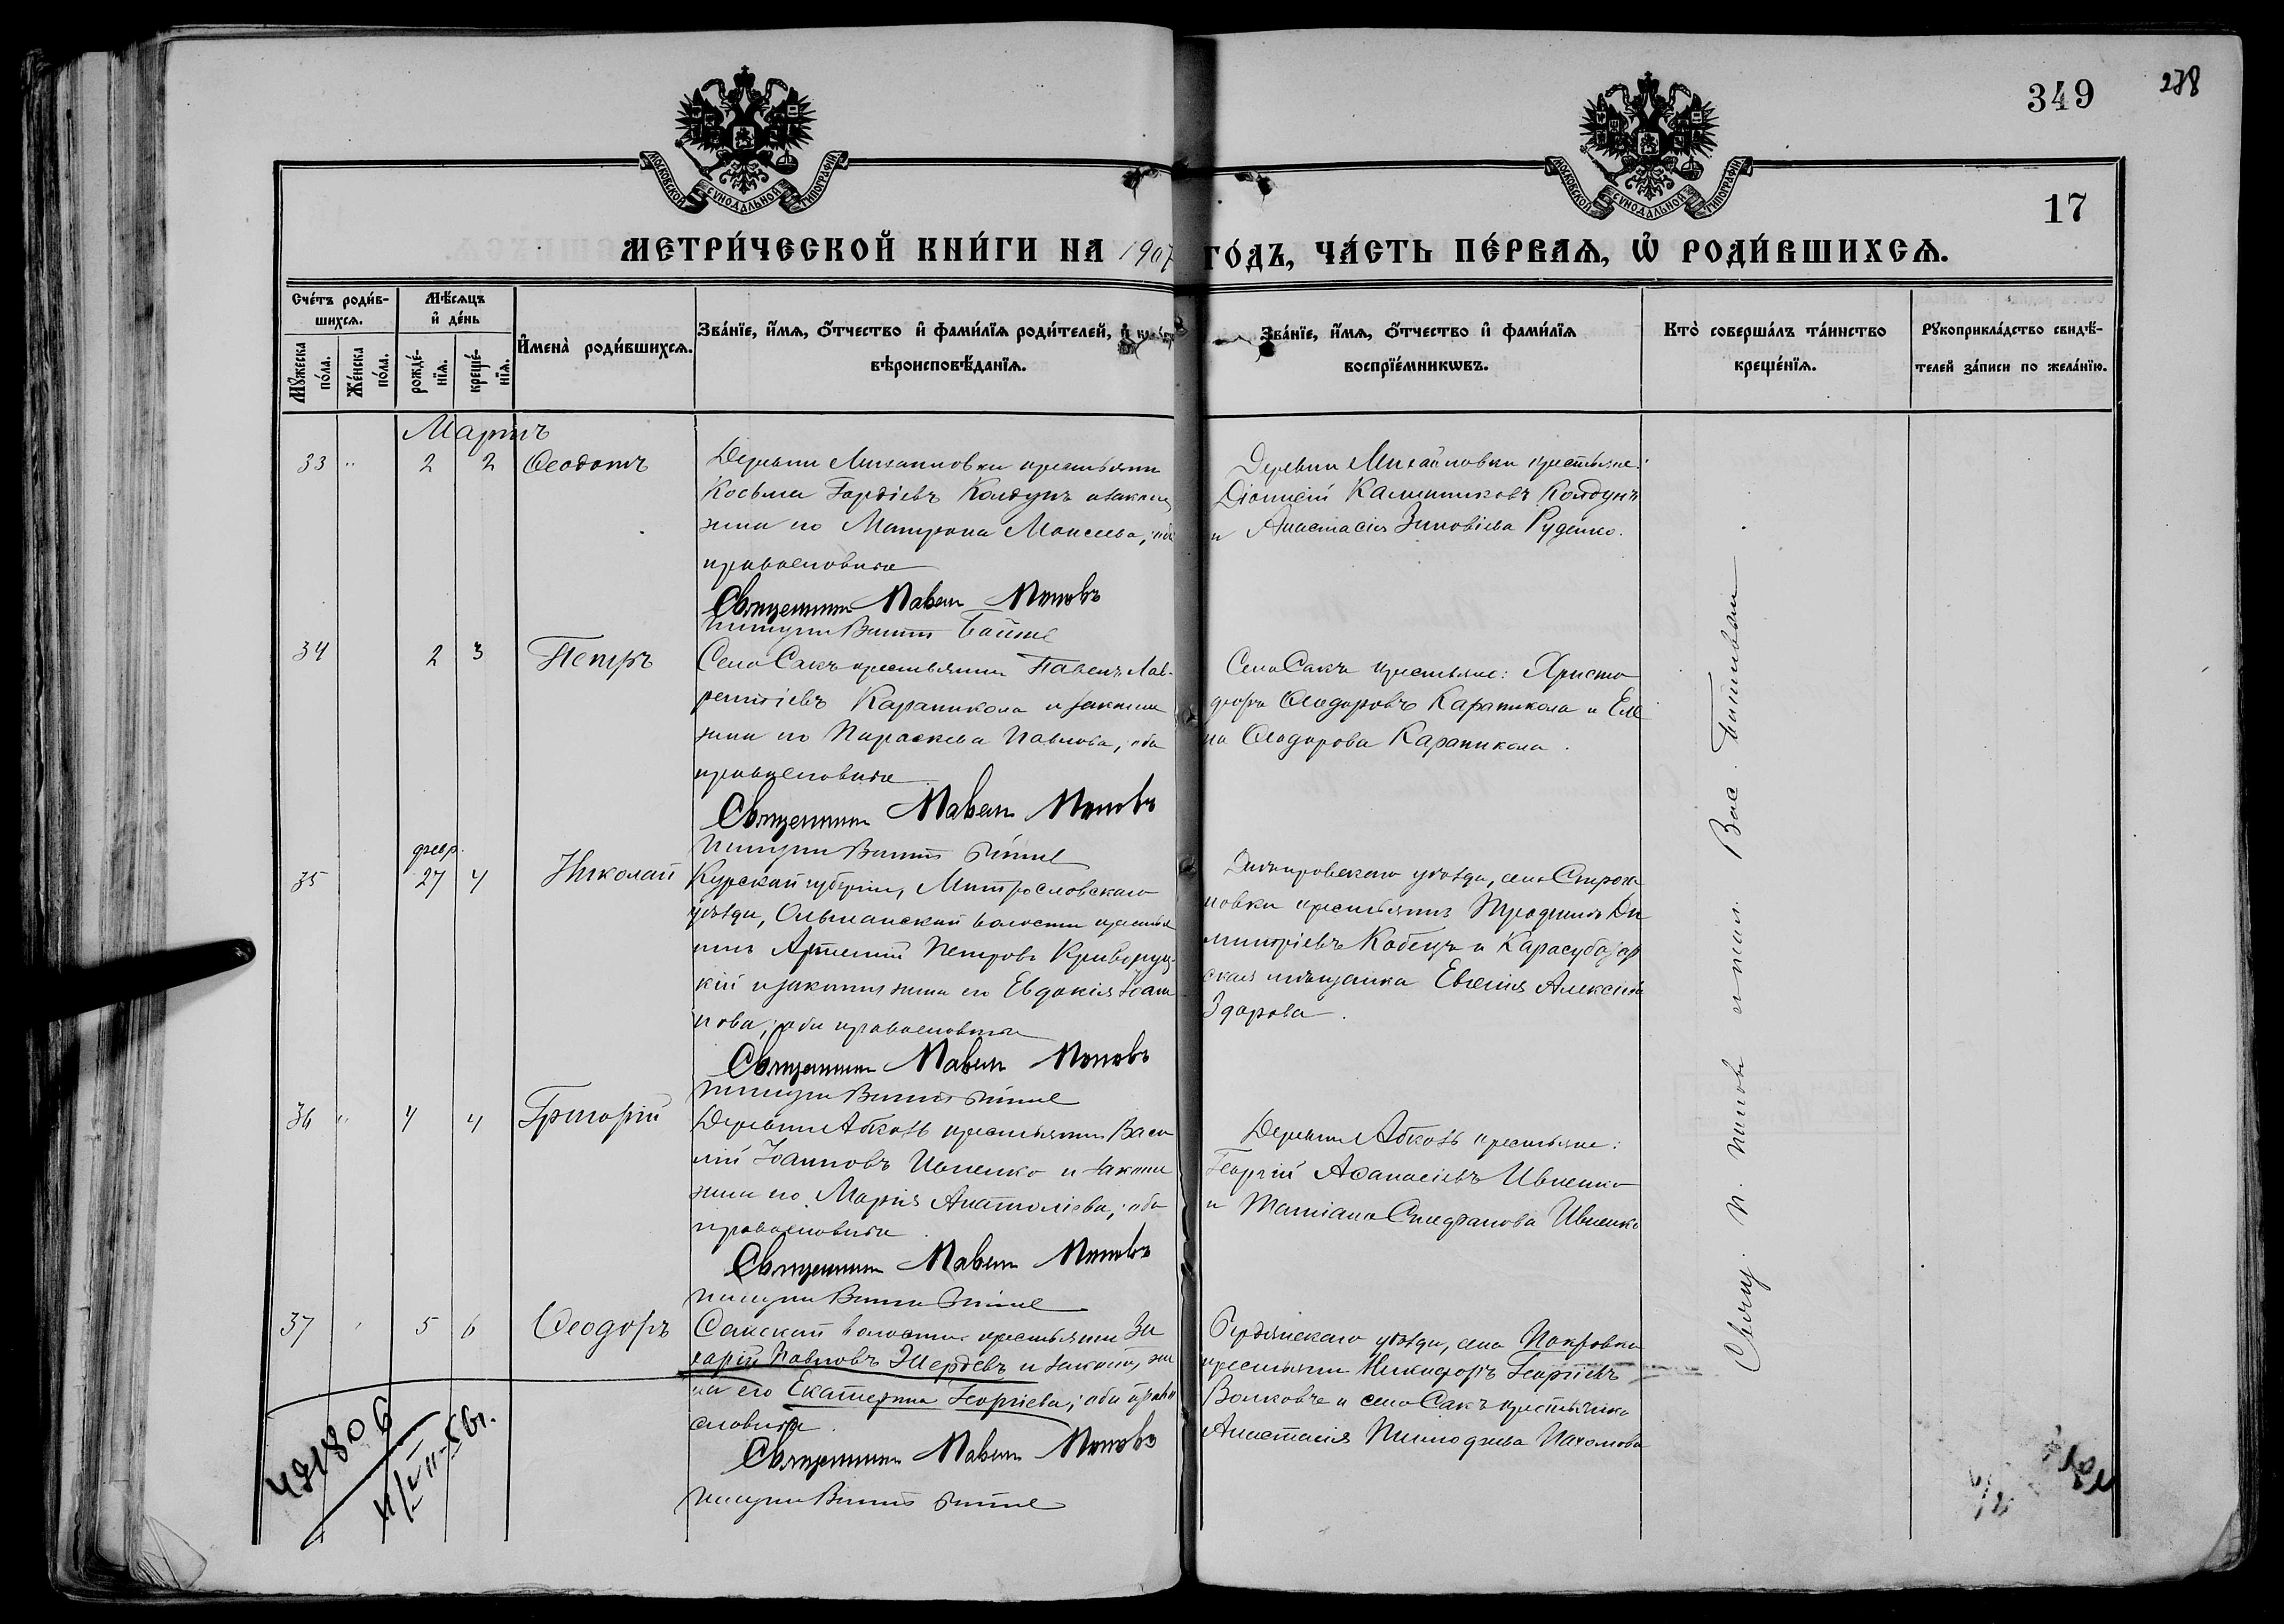 349
278
17
МОСКОВСКОЙ СѴНОДАЛЬНОЙ ТИПОГРАФІИ
МОСКОВСКОЙ СѴНОДАЛЬНОЙ ТИПОГРАФІИ
МЕТРИ́ЧЕСКОЙ КНИ́ГИ НА 1907 ГО́ДЪ, ЧА́СТЬ ПЕ́РВАѦ, Ѡ҆ РОДИ́ВШИХСѦ.
Сче́тъ роди́в-
шихсѧ.
Мꙋ́жеска по́ла.
Же́нска по́ла.
Мѣ́сѧцъ
и҆ де́нь
рожде́-
нїѧ.
креще́-
нїѧ.
И҆мена̀ роди́вшихсѧ.
Зва́нїе, и҆́мѧ, ѻ҆́тчество и҆ фами́лїѧ роди́телей,
вѣроисповѣ́данїѧ.
Зва́нїе, и҆́мѧ, ѻ҆́тчество и҆ фами́лїѧ
воспрїе́мникѡвъ.
Кто̀ соверша́лъ та́инство
креще́нїѧ.
Рꙋкоприкла́дство свидѣ́-
телей за́писи по жела́нїю.
Мартъ
33 " 2 2 Ѳеодотъ
Деревни Михайловки крестьянинъ
Косьма Гордіевъ Колдунъ и законн
жена его Матрона Моисеева, оба
православные
Священникъ Павелъ Поповъ
Деревни Михайловки крестьяне:
Діонисій Каллиниковъ Колдунъ
и Анастасія Зиновіева Руденко.
34 2 3 Петръ
Село Сакъ крестьянинъ Павелъ Лав-
рентіевъ Караникола и законная
жена его Параскева Павлова, оба
православные
Священникъ Павелъ Поповъ
Село Сакъ крестьяне: Христо
форъ Ѳеодоровъ Караникола и Еле
на Ѳеодорова Караникола.
февр.
35 27 4 Николай
Курской губерніи, Митрославскаго
уѣзда, Ольшанской волости крестья
нинъ Артемій Петровъ Криворуц-
кій и законная жена его Евдокія Іоан
нова; оба православные
Священникъ Павелъ Поповъ
Днѣпровскаго уѣзда, села
новки крестьянинъ Трофимъ Ди
митріевъ Кобецъ и Карасубазар
ская мѣщанка Евгенія Алексѣева
Здорова.
36 " 4 4 Григорій
Деревни Абкозъ крестьянинъ Васи
лій Іоанновъ Ивненко и законная
жена его Марія Анатоліева; оба
православные.
Священникъ Павелъ Поповъ
Деревни Абкозъ крестьяне:
Георгій Аѳанасіевъ Ивненко
и Татіана Стефанова Ивненко
37 5 6 Ѳеодоръ
Сакской волости крестьянинъ За
харій Павловъ Шердевъ и законн, же
на его Екатерина Георгіева; оба право
славные.
Священникъ Павелъ Поповъ
Бердянскаго уѣзда, села Покровки
крестьянинъ Никифоръ Георгіевъ
Волковъ и село Сакъ крестьянка
Анастасія Пахомова
Свящ. П. Поповъ и псал. Вас.